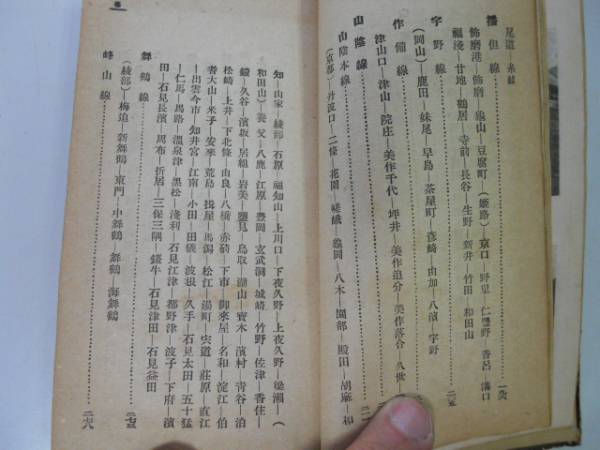 尾道 糸崎
播但線
飾磨港―飾磨―龜山―豆腐町(姫路)京口 野里 仁豐野―香呂 溝口
福渡―甘地―鶴居―寺前―長谷―生野―新井 竹田 和田山
宇野線
(岡山)―鹿田―妹尾 早島―茶屋町―彦崎―由加―八濱 宇野
作備線
津山口―津山―院庄―美作千代―坪井―美作追分―美作落合―久世
山陰線
山陰本線
(京都)丹波口―二條―花園―嵯峨―龜岡―八木―園部―殿田―胡麻―和
知―山家―綾部―石原―福知山―上川口―下夜久野―上夜久野―梁瀨―(
和田山)養父―八鹿―江原―豐岡―玄武洞―城崎―竹野―佐津―香住―
鎧―久谷―濱坂―居組―岩美―鹽見―鳥取―湖山―寳木―濱村―青谷―泊
松崎―上井―下北條―由良―八橋―赤碕―下市―御來屋―名和―淀江―伯
耆大山―米子―安來―荒島―揖屋―馬潟―松江―湯町―宍道―莊原―直江
―出雲今市―知井宮―江南―小田―田儀―波根―久手―石見太田―五十猛
―仁馬―馬路―溫泉津―黒松―淺利―石見江津―都野津―波子―下府―濱
田―石見長濱 周布―折居―三保三隅―鎌手―石見津田―石見益田
舞鶴線 二七五
(綾部)―梅迫―新舞鶴―東門―中舞鶴―舞鶴―海舞鶴
峰山線 二六八